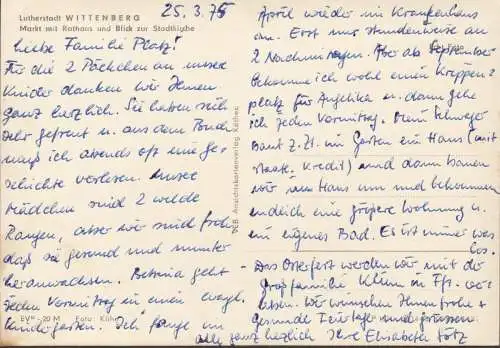 Lutherstadt WITTENBERG
Markt mit Rathaus und Blick zur Stadtkirche
25.3.75
Liebe Familie Platz!
Für die 2 Päckchen an unsre
Kinder danken wir Ihnen
ganz herzlich. Sie haben sich
sehr gefreut u. aus dem Buch
muß ich abends oft eine Ge-
schichte vorlesen. Unsre
Mädchen sind 2 wilde
Rangen, aber wir sind froh
daß sie gesund und munter
heranwachsen. Bettina geht
jeden Vormittag in einen evgl.
Kindergarten. Ich fange im
EVP -,20 M Foto: Kühn
PGB Ansichtskartenverlag Köthen
April wieder im Krankenhaus
an. Erst nur stundenweise an
2 Nachmittagen. Aber ab September
bekomme ich wohl einen Krippen-
platz für Angelika u. dann gehe
ich jeden Vormittag. Mein Schwager
baut z.Zt. im Garten ein Haus (mit
staatl. Kredit) und dann bauen
wir uns Haus um und bekommen
endlich eine größere Wohnung u.
ein eigenes Bad. Es ist immer was
los.
Das Osterfest werden wir mit der
Großfamilie
Wir wünschen Ihnen frohe
gesunde Feiertage und grüssen
alle ganz herzlich Ihre Elisabeth